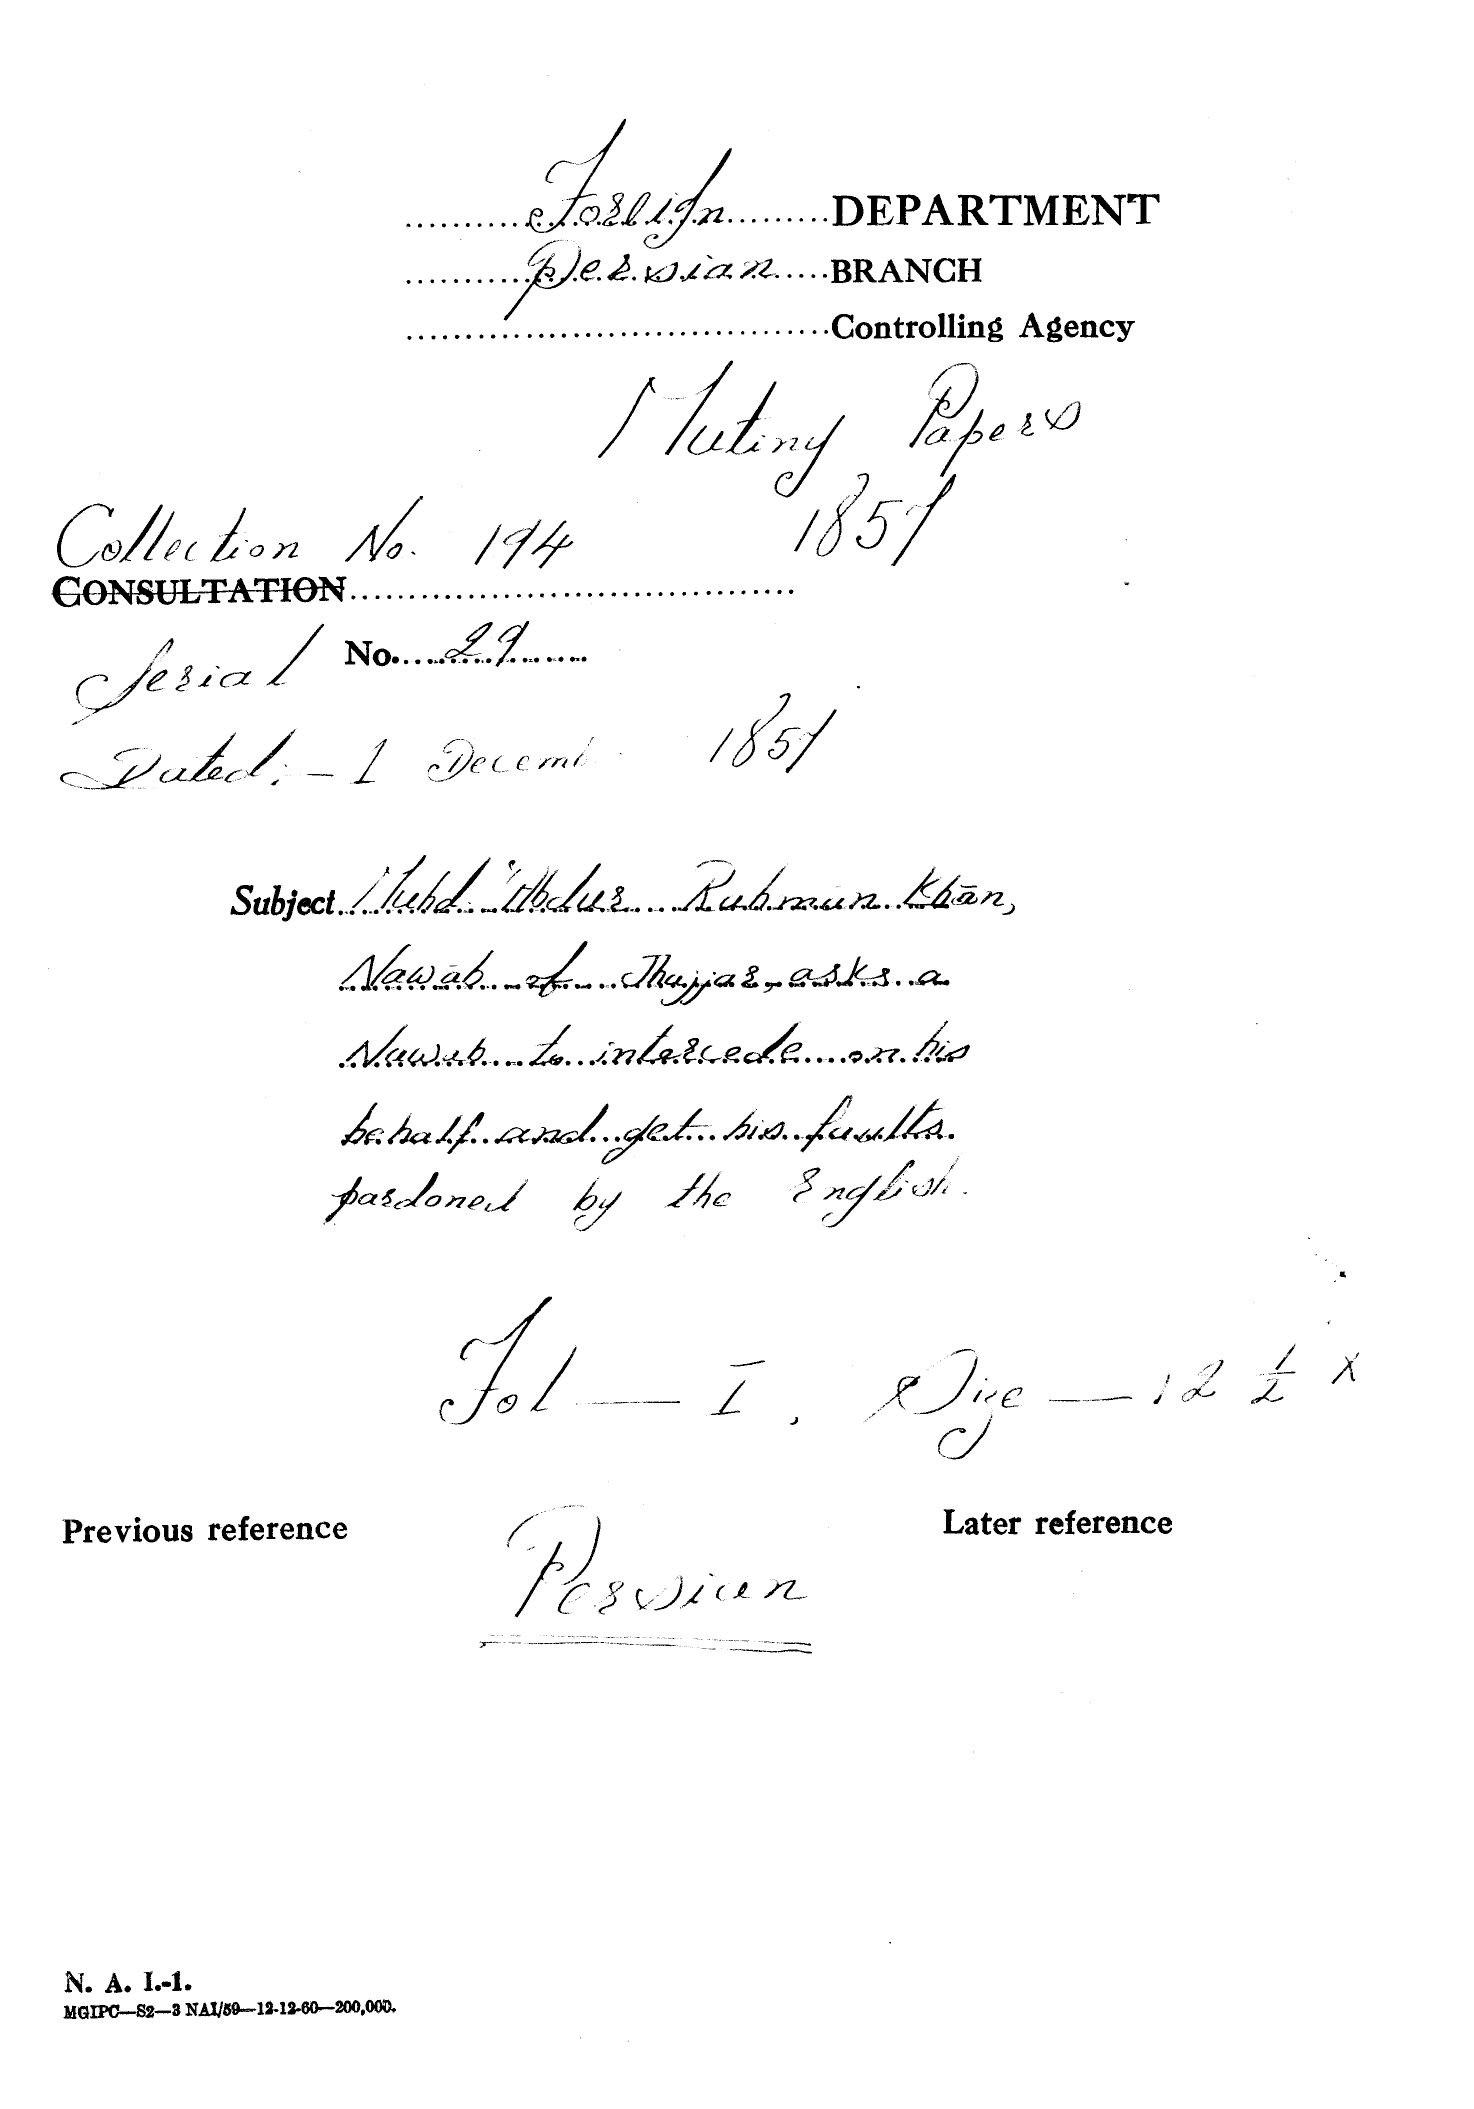 Foreign DEPARTMENT
Persian BRANCH
Controlling Agency
Mutiny Papers
1857
Collection No. 194
CONSULTATION
Serial No. 29
Dated:- 1 Decemb 1857
Subject Muhd. 'Abdur Rahman Khān,
Nawāb of Jhajjar, asks a
Nawab to intercede on his
behalf and get his faults
pardoned by the English.
Fol — I, Size — 12 ½ x
Previous reference
Later reference
Persian
N. A. I.-1.
MGIPC—S2—3 NAI/59—12-12-60—200,000.